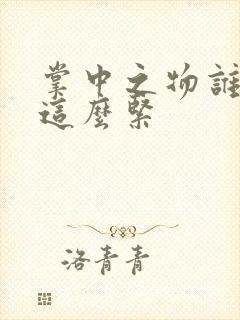 掌中之物誰
這麼緊
洛青青